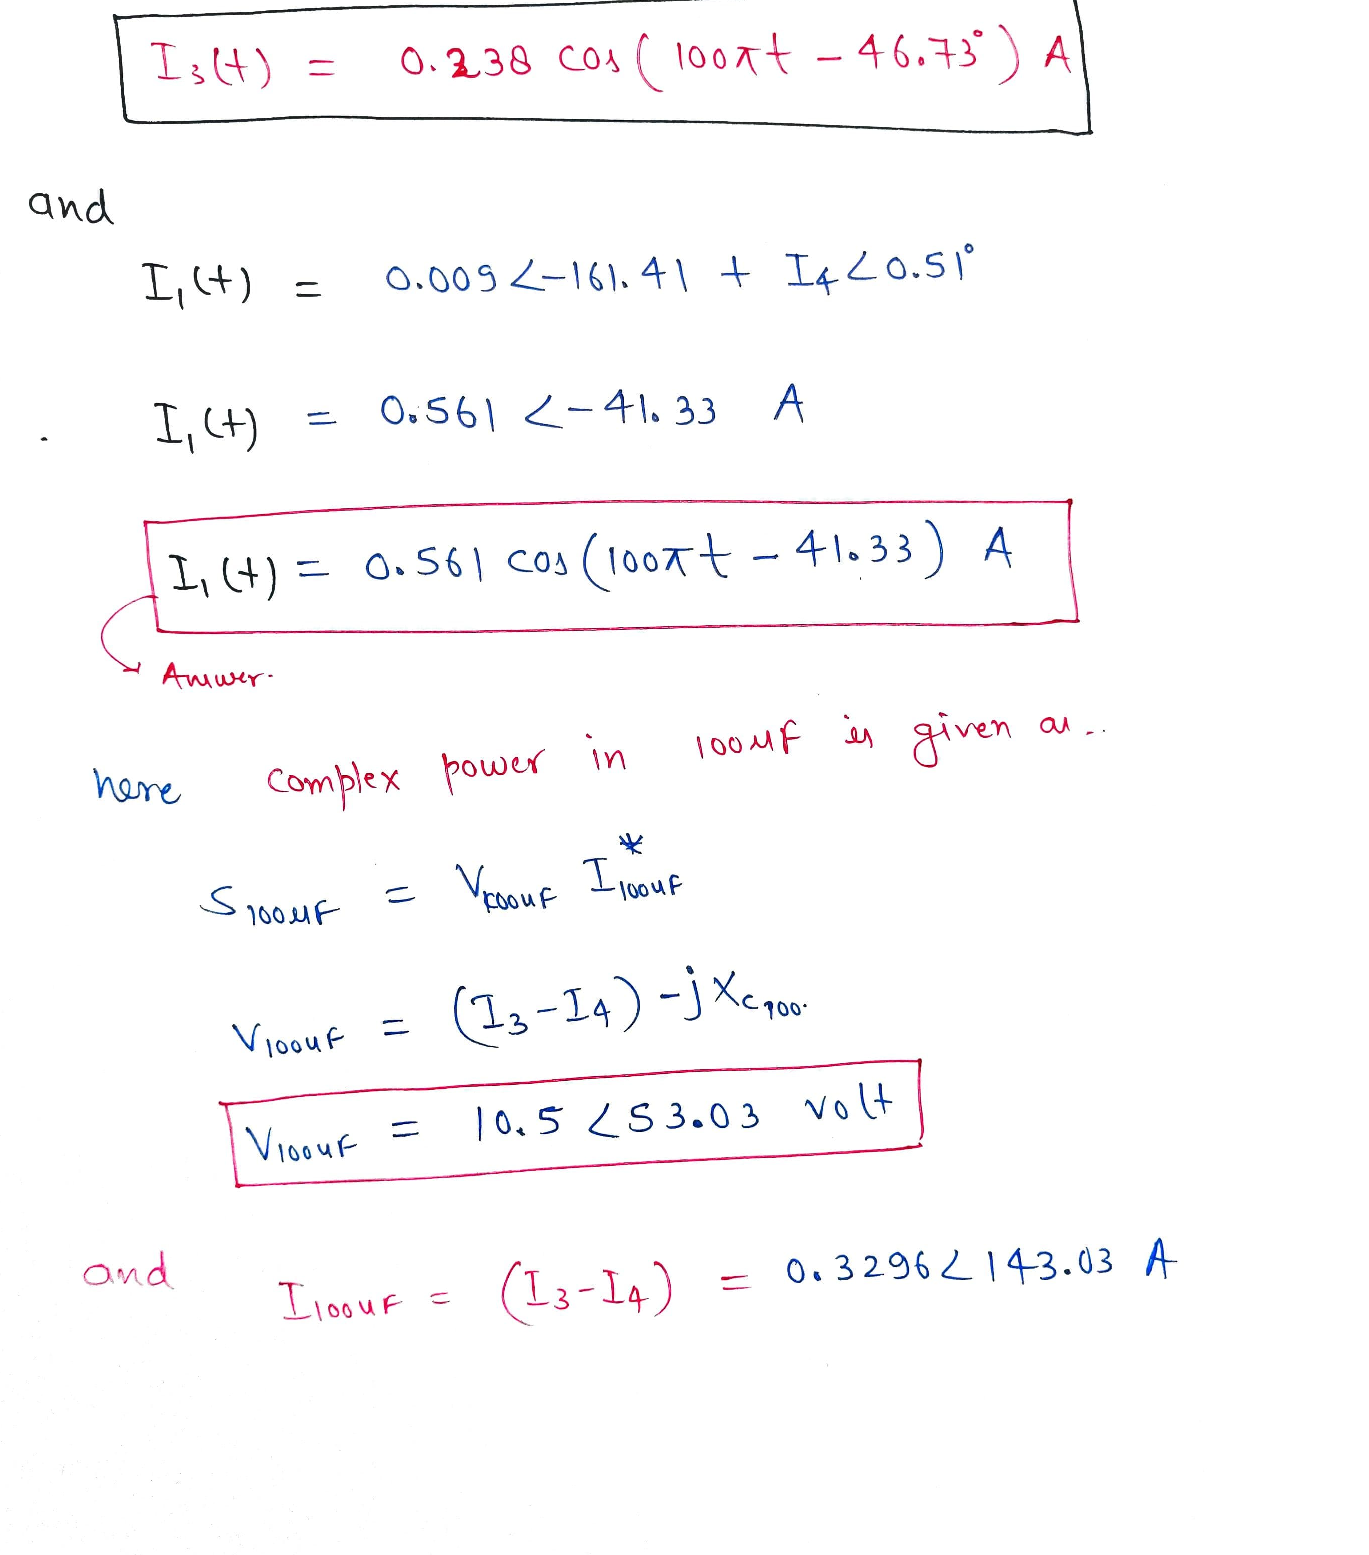 I₃(t) = 0.238 cos(100πt - 46.73°) A
and
I₁(t) = 0.009 ∠-161.41 + I₄∠0.51°
I₁(t) = 0.561 ∠-41.33 A
I₁(t) = 0.561 cos(100πt - 41.33) A
Answer.
here complex power in 100uf is given as..
S100uf = V100uf I*100uf
V100uf = (I₃-I₄) -jXc100.
V100uf = 10.5 ∠53.03 volt
and I100uf = (I₃-I₄) = 0.3296∠143.03 A